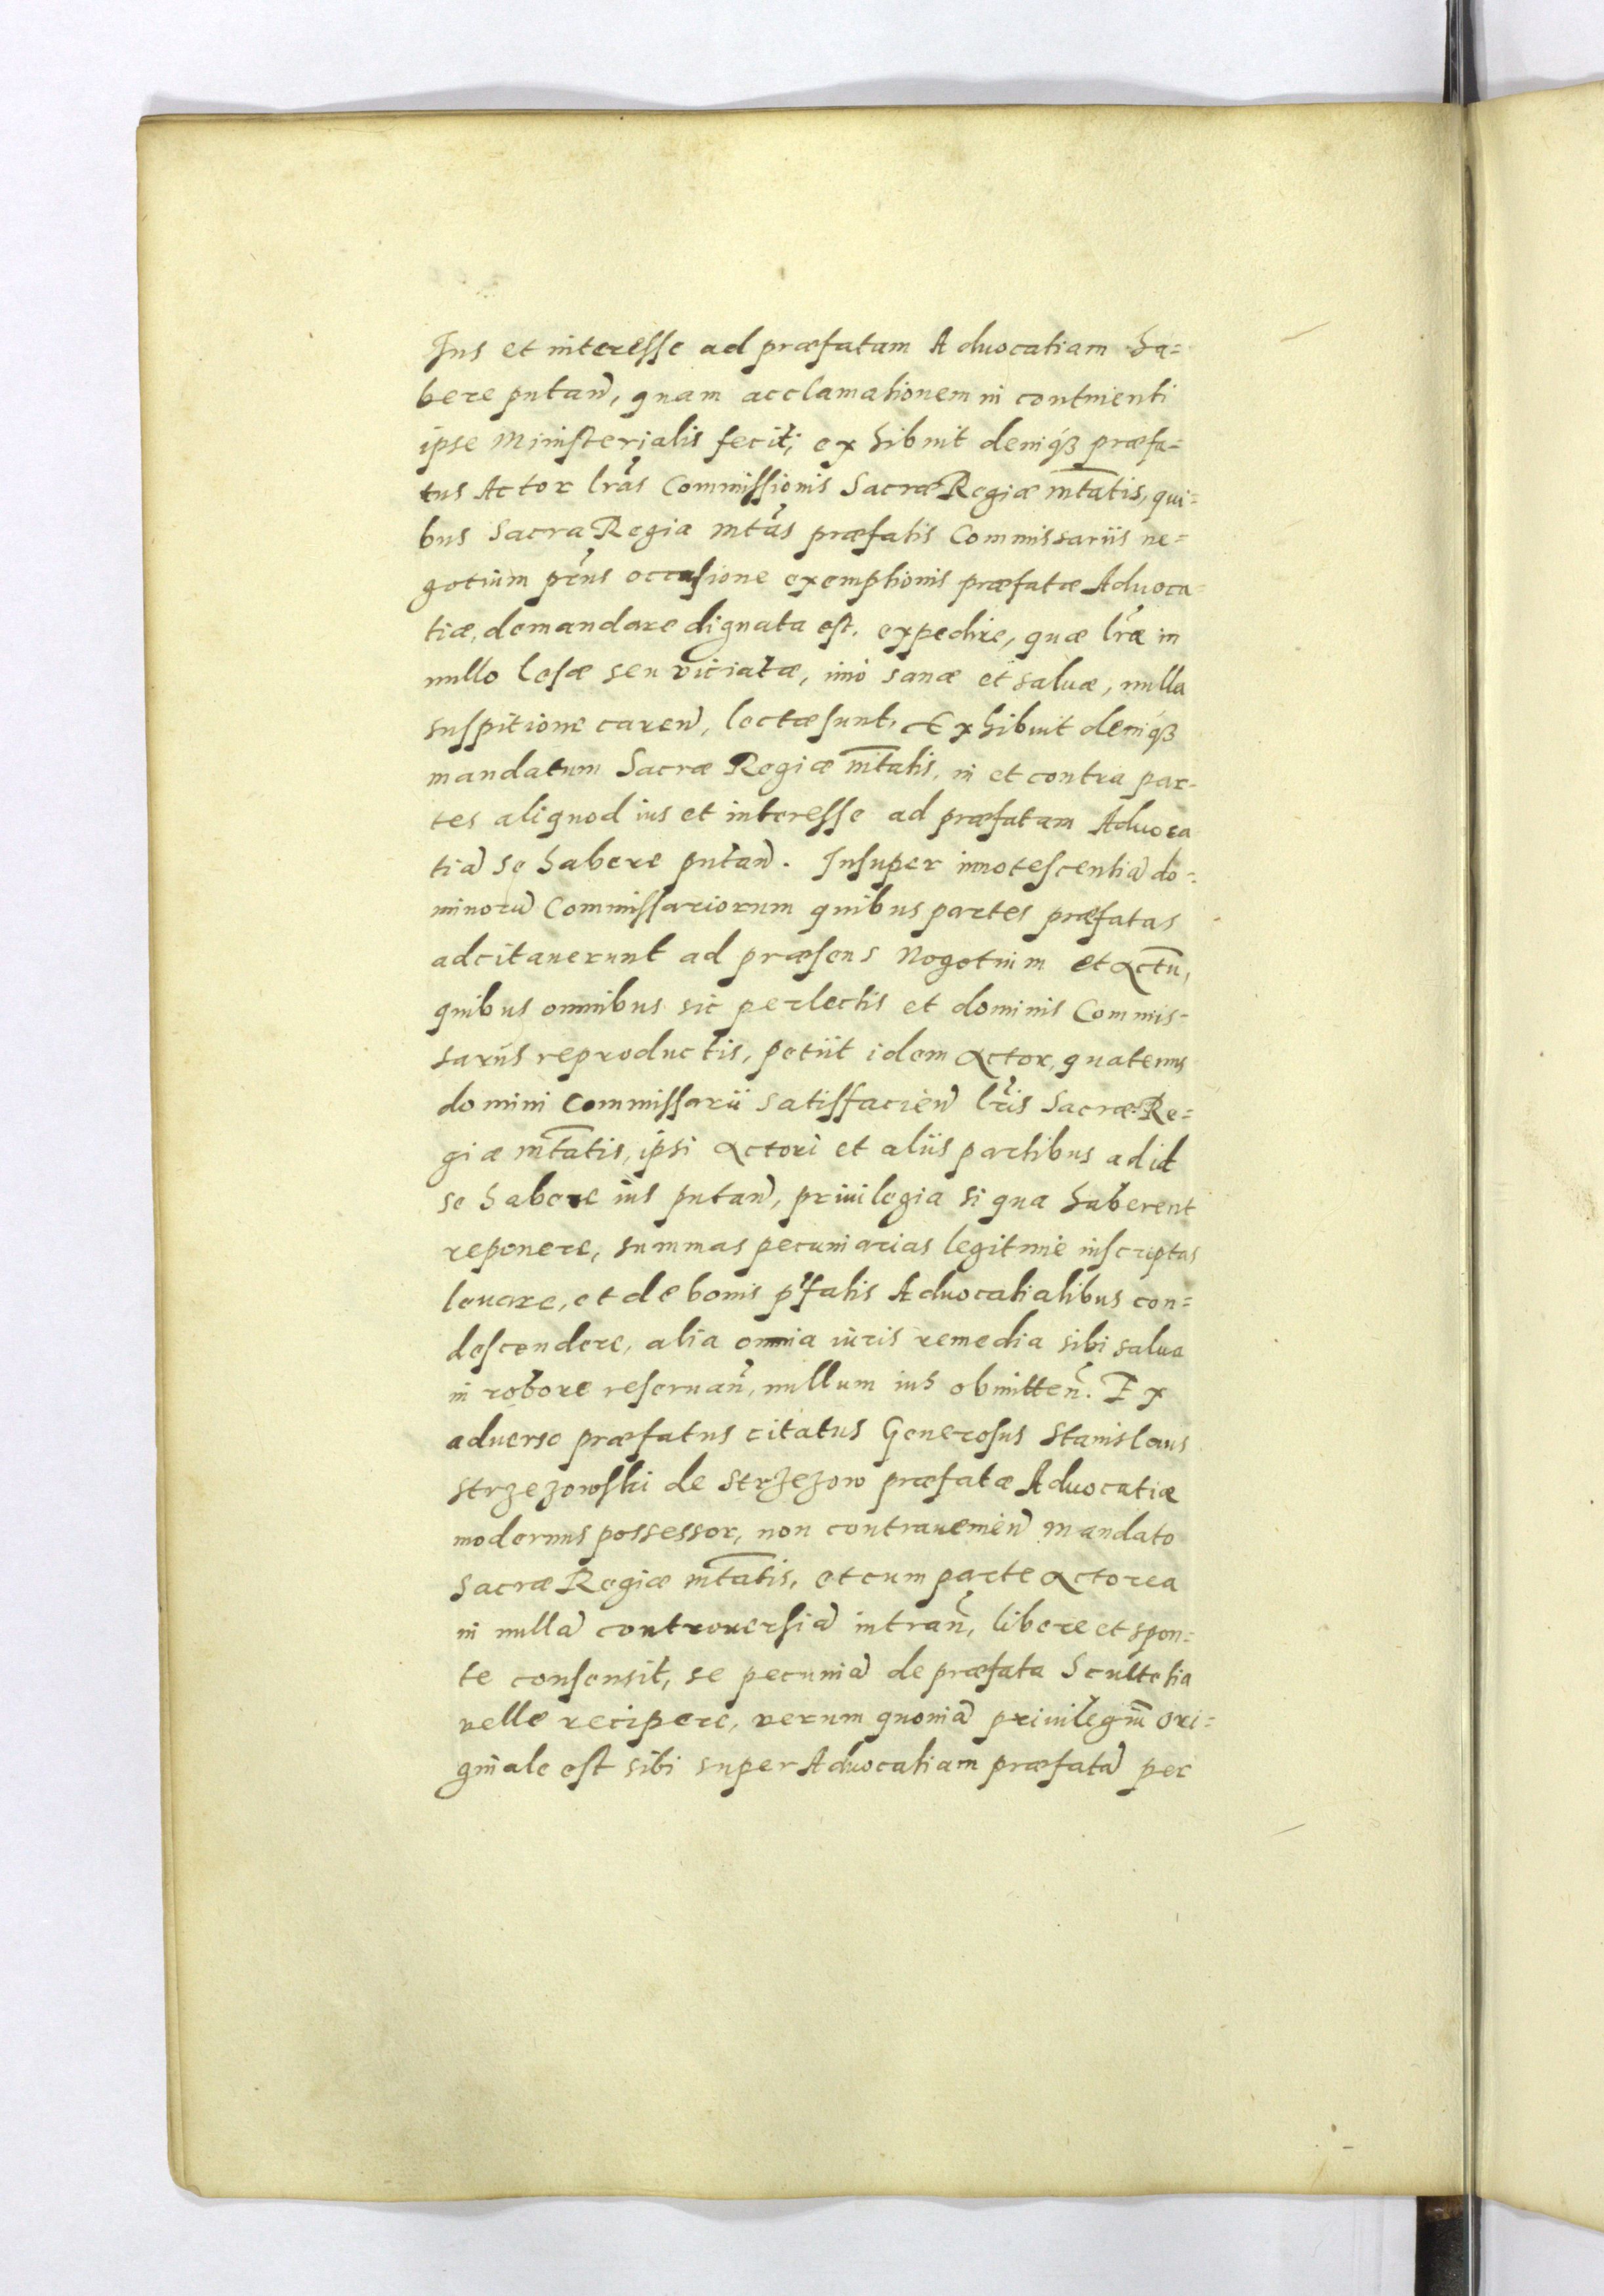 Jus et interesse ad præfatam Aduocatiam ha=
bere putan̄, quam acclamationem in continenti
ipse Ministerialis fecit; exhibuit deniq́ꝫ præfa=
tus Actor lr̃as Commissionis Sacræ Regiæ Mt̄atis, qui=
bus Sacra Regia Mtãs præfatis Commissariis ne=
gotium pñs occasione exemptionis præfatæ Aduoca=
tiæ, demandare dignata est. expedire, quæ lr̃æ in
nullo lesæ seu viciatæ, imò sanæ et saluæ, nulla
suspitione caren̄, lectæ sunt, Exhibuit deniq́ꝫ
mandatum Sacræ Regiæ Mt̄atis, in et contra par=
tes aliquod ius et interesse ad præfatam Aduoca
tiā se habere putan̄. Insuper innotescentiā do=
minorū Commissariorum quibus partes præfatas
adcitauerunt ad præsens Negotium et Actū,
quibus omnibus sic perlectis et dominis Commis=
sariis reproductis, petiit idem Actor, quatenus
domini Commissarii satisfacien̄ lr̃is Sacræ Re=
giæ Mt̄atis, ipsi Actori et aliis partibus ad id
se habere ius putan̄, priuilegia si qua haberent
reponere, summas pecuniarias legitimè inscriptas
leuare, et de bonis p̃fatis Aduocatialibus con=
descendere, alia omnia iuris remedia sibi salua
in robore reseruan̄, nullum ius obmitten̄. Ex
aduerso præfatus citatus Generosus Stanislaus
Strzezowski de Strzezow præfatæ Aduocatiæ
modernus possessor, non contrauenien̄ Mandato
Sacræ Regiæ Mt̄atis, et cum parte Actorea
in nullā controuersiā intran̄, libere et spon=
te consensit, se pecuniā de præfata Scultetia
velle recipere, verum quoniā priuilegiū ori=
ginale est sibi super Aduocatiam præfatā per